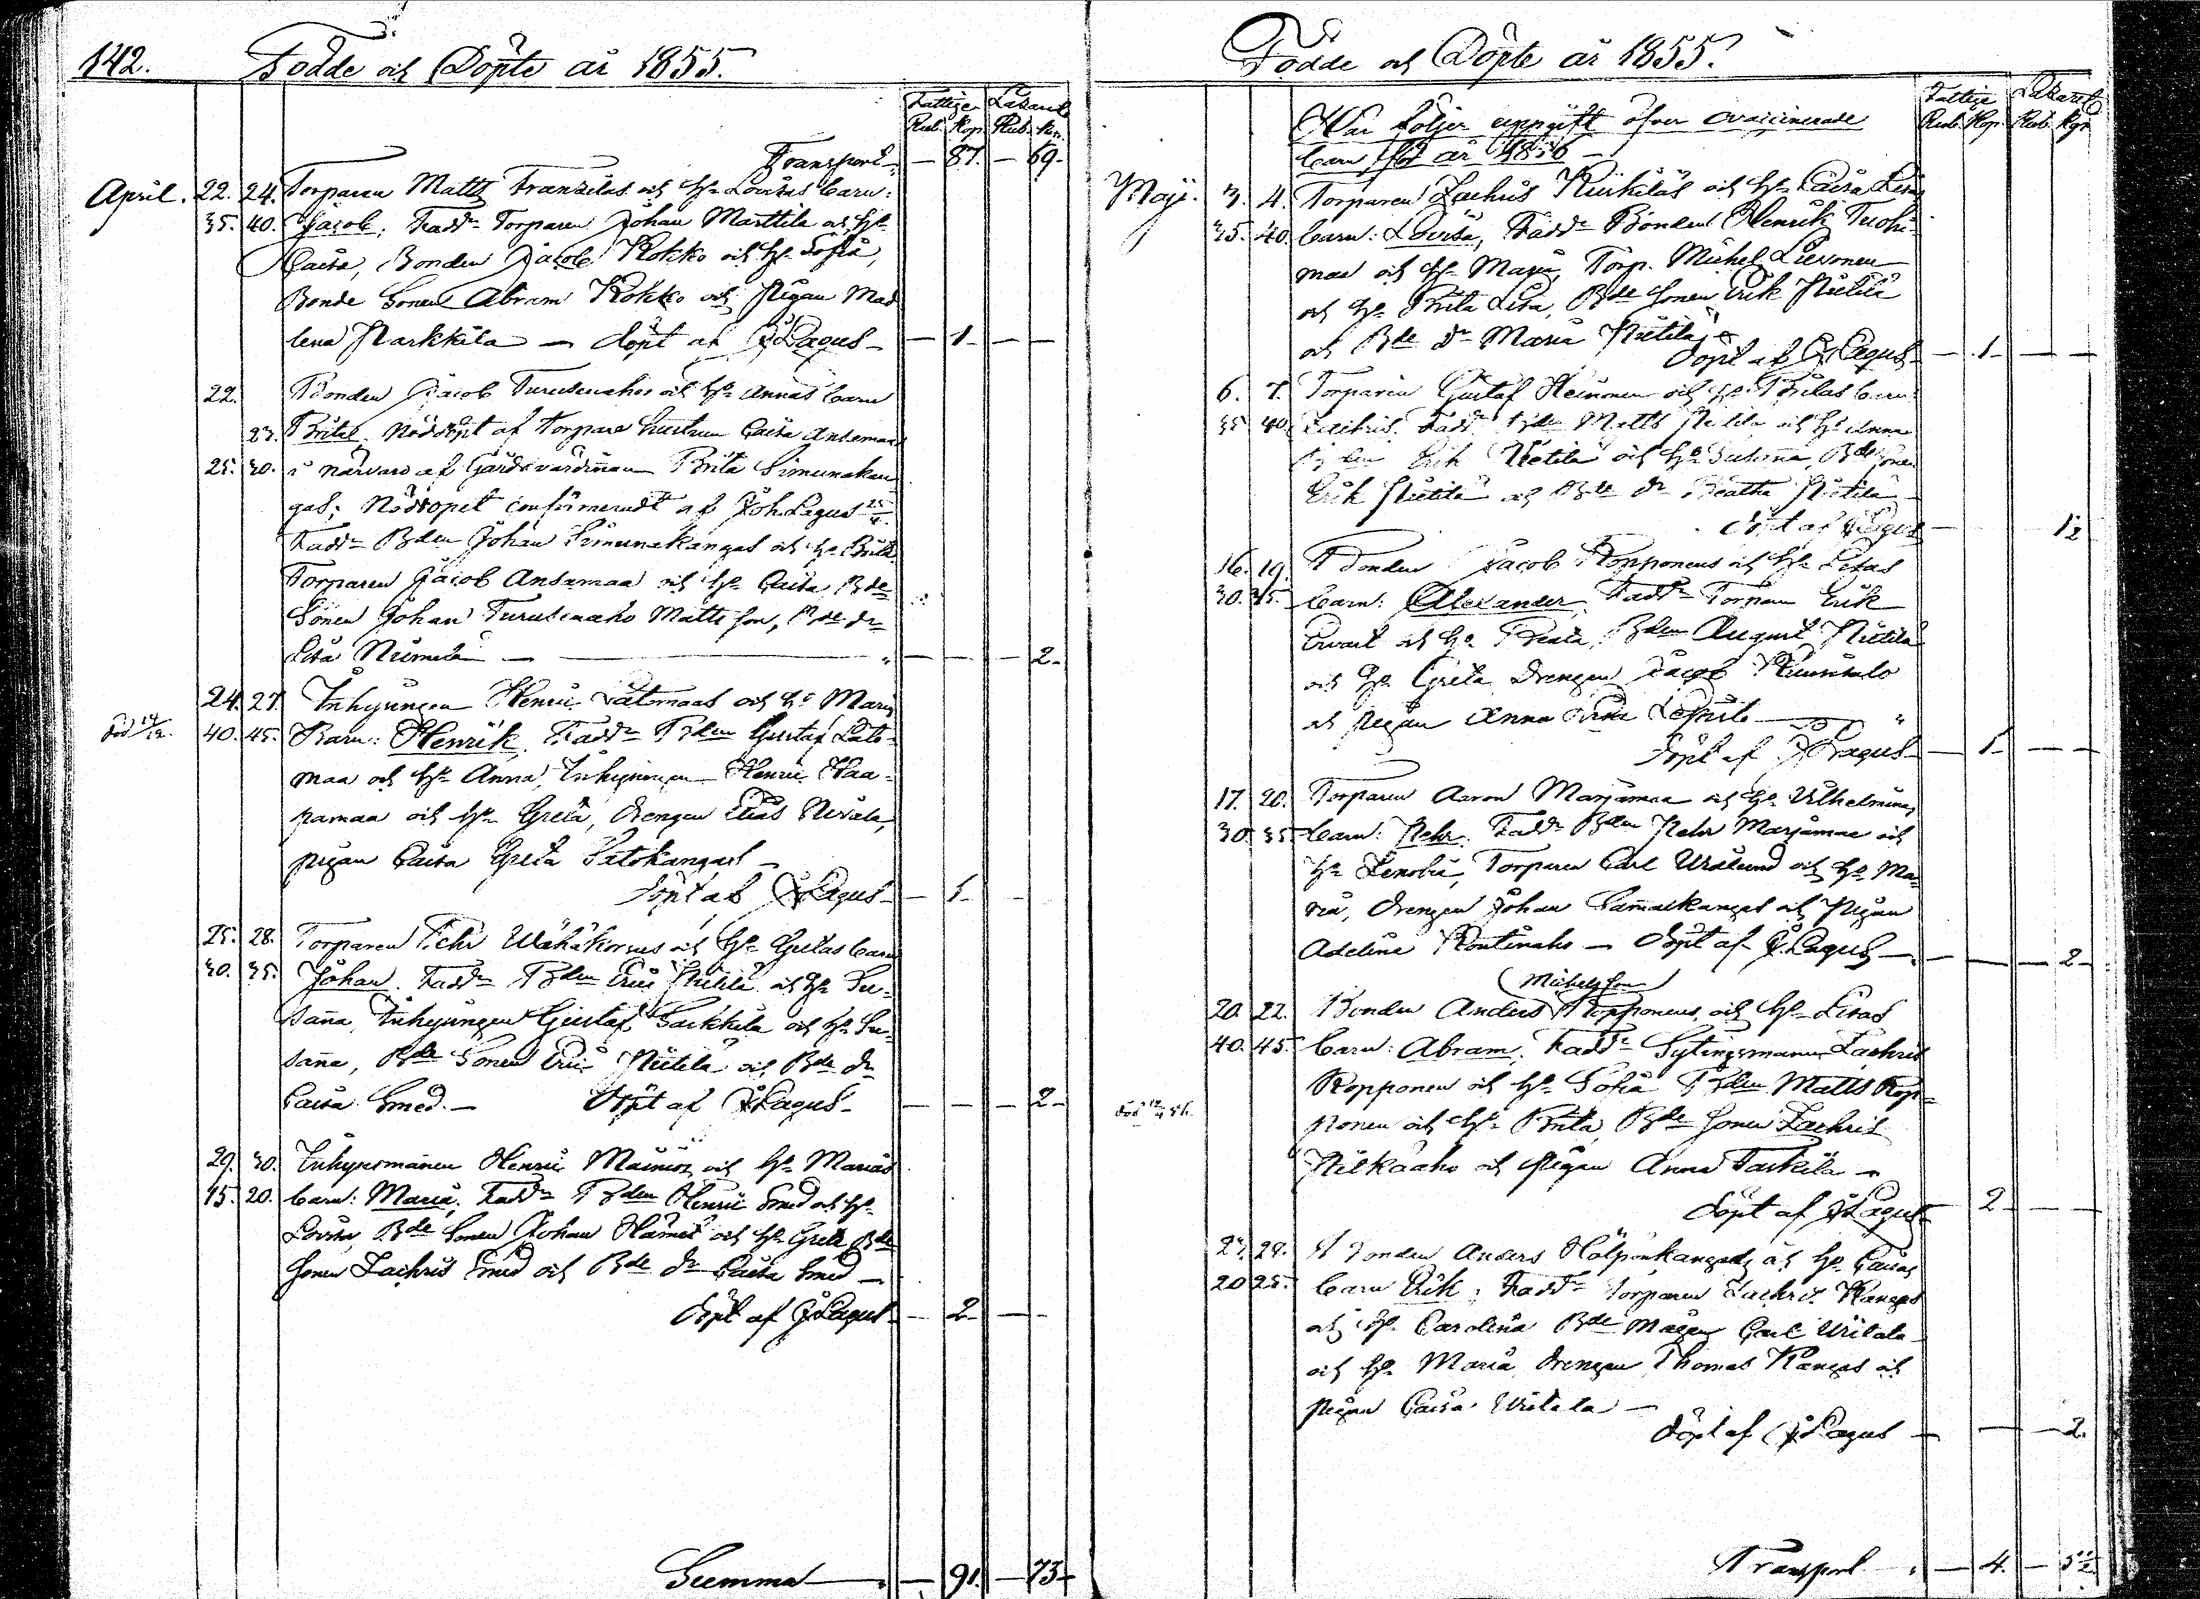 142. Födde och Döpte år 1855.
Fattige Lazaret
Rub. Kop. Rub. Kop.
Transport — 87. — 69.
April. 22. 24. Torparen Matts Franzilas och Ho Lovisas barn:
35. 40. Jacob; Fadd. Torparen Johan Marttila och Ho
Caisa, Bonden Jacob Kokko och Ho Sofia,
Bonde Sonen Abram Kokko och Pigan Mad
lena Markkila — döpt af J Lagus — 1 — —
22. Bonden Jacob Turusenahos och Ho Annas barn
23. Brita. Nöddöpt af Torpare hustrun Caisa Ansamaa
25. 30. i närvaro af Gårdsvärdinnan Brita Simunakan
gas; Nöddopet confirmeradt af Joh. Lagus 25/4.
Fadd. Bden Johan Simunakangas och Ho Brita
Torparen Jacob Ansamaa och Ho Caisa, Bde
Sonen Johan Turusenaho Matts son, Bde dr
Lisa Niemelä — — — 2 —
24. 27. Inhysingen Henric Latomaas och Ho Marias
död 14/12. 40. 45. Barn: Henrik, Fadd. Bden Gustaf Lato-
maa och Ho Anna, Inhysingen Henric Haa-
pamaa och Ho Greta, drengen Elias Nevala,
pigan Caisa Greta Patokangas —
Döpt af J Lagus — 1 — —
25. 28. Torparen Pehr Wähäkorpus och Ho Gretas barn
30. 35. Johan. Fadd. Bden Eric Pietilä och Ho Su-
sanna, Inhysingen Gustaf Sarkkila och Ho Su
sanna, Bde Sonen Eric Pietilä och Bde dr
Caisa Smed. — Döpt af J Lagus — — — 2 —
29. 30. Inhysesmannen Henric Mainios och Ho Marias
15. 20. barn: Maria; Fadd. Bden Henric Smed och Ho
Lovisa, Bde Sonen Johan Hannes och Ho Greta Bde
Sonen Zachris Smed och Bde dr Caisa Smed —
döpt af J Lagus — 2 — —
Summa — 91. — 73 —
Födde och Döpte år 1855.
Fattige Lazaret
Rub. Kop. Rub. Kop.
Här följer uppgift öfver ovaccinerade
barn för år 1856 —
Maji. 3. 4. Torparen Zachris Kurkiläs och Ho Caisa Lisas
35. 40. barn: Lovisa, Fadd. Bonden Henrik Tuohi-
maa och Ho Maria, Torp. Michel Lievonen
och Ho Brita Lisa, Bde Sonen Erik Pietilä
och Bde dr Maria Pietilä
döpt af J Lagus — 1 — —
6. 7. Torparen Gustaf Heinonen och Ho Britas barn
35 40 Zachris. Fadd. Bden Matts Pietilä och Ho Anna
Bden Erik Pietilä och Ho Susanna, Bde Sonen
Erik Pietilä och Bde dr Beatha Pietilä
döpt af J Lagus — 1½
16. 19. Bonden Jacob Kopponens och Ho Lisas
30. 35. barn: Alexander, Fadd. Torparen Erik
och Ho Beata, Bden August Pietilä
och Ho Greta, drengen Jacob
och pigan Anna
Döpt af J Lagus — 1 — —
17. 20. Torparen Aaron Marjamaa och Ho Vilhelminas
30. 35 barn: Pehr. Fadd. Bden Pehr Marjamaa och
Ho Zenobia, Torparen Carl Wiklund och Ho Ma-
ria, drengen Johan Sammalkangas och Pigan
Adelina Kontinaho — döpt af J. Lagus — — — 2 —
Michelsson
20. 22. Bonden Anders Kopponens och Ho Lisas
40. 45. barn: Abram. Fadd. Sytingsmannen Zachris
Kopponen och Ho Sofia Bden Matts Kop-
död 12/4 56. ponen och Ho Brita, Bde Sonen Zachris
Pelkkaaho och Pigan Anna Taskila —
döpt af J Lagus — 2 — —
27. 28. Bonden Anders Hölpönkangas och Ho Caisas
20 25. barn Erik; Fadd. Torparen Zachris Kangas
och Ho Carolina Bde mågen Carl Uitala
och Ho Maria, drengen Thomas Kangas och
pigan Caisa Uitala —
döpt af J Lagus — — — 2.
Transport — 4. — 5½